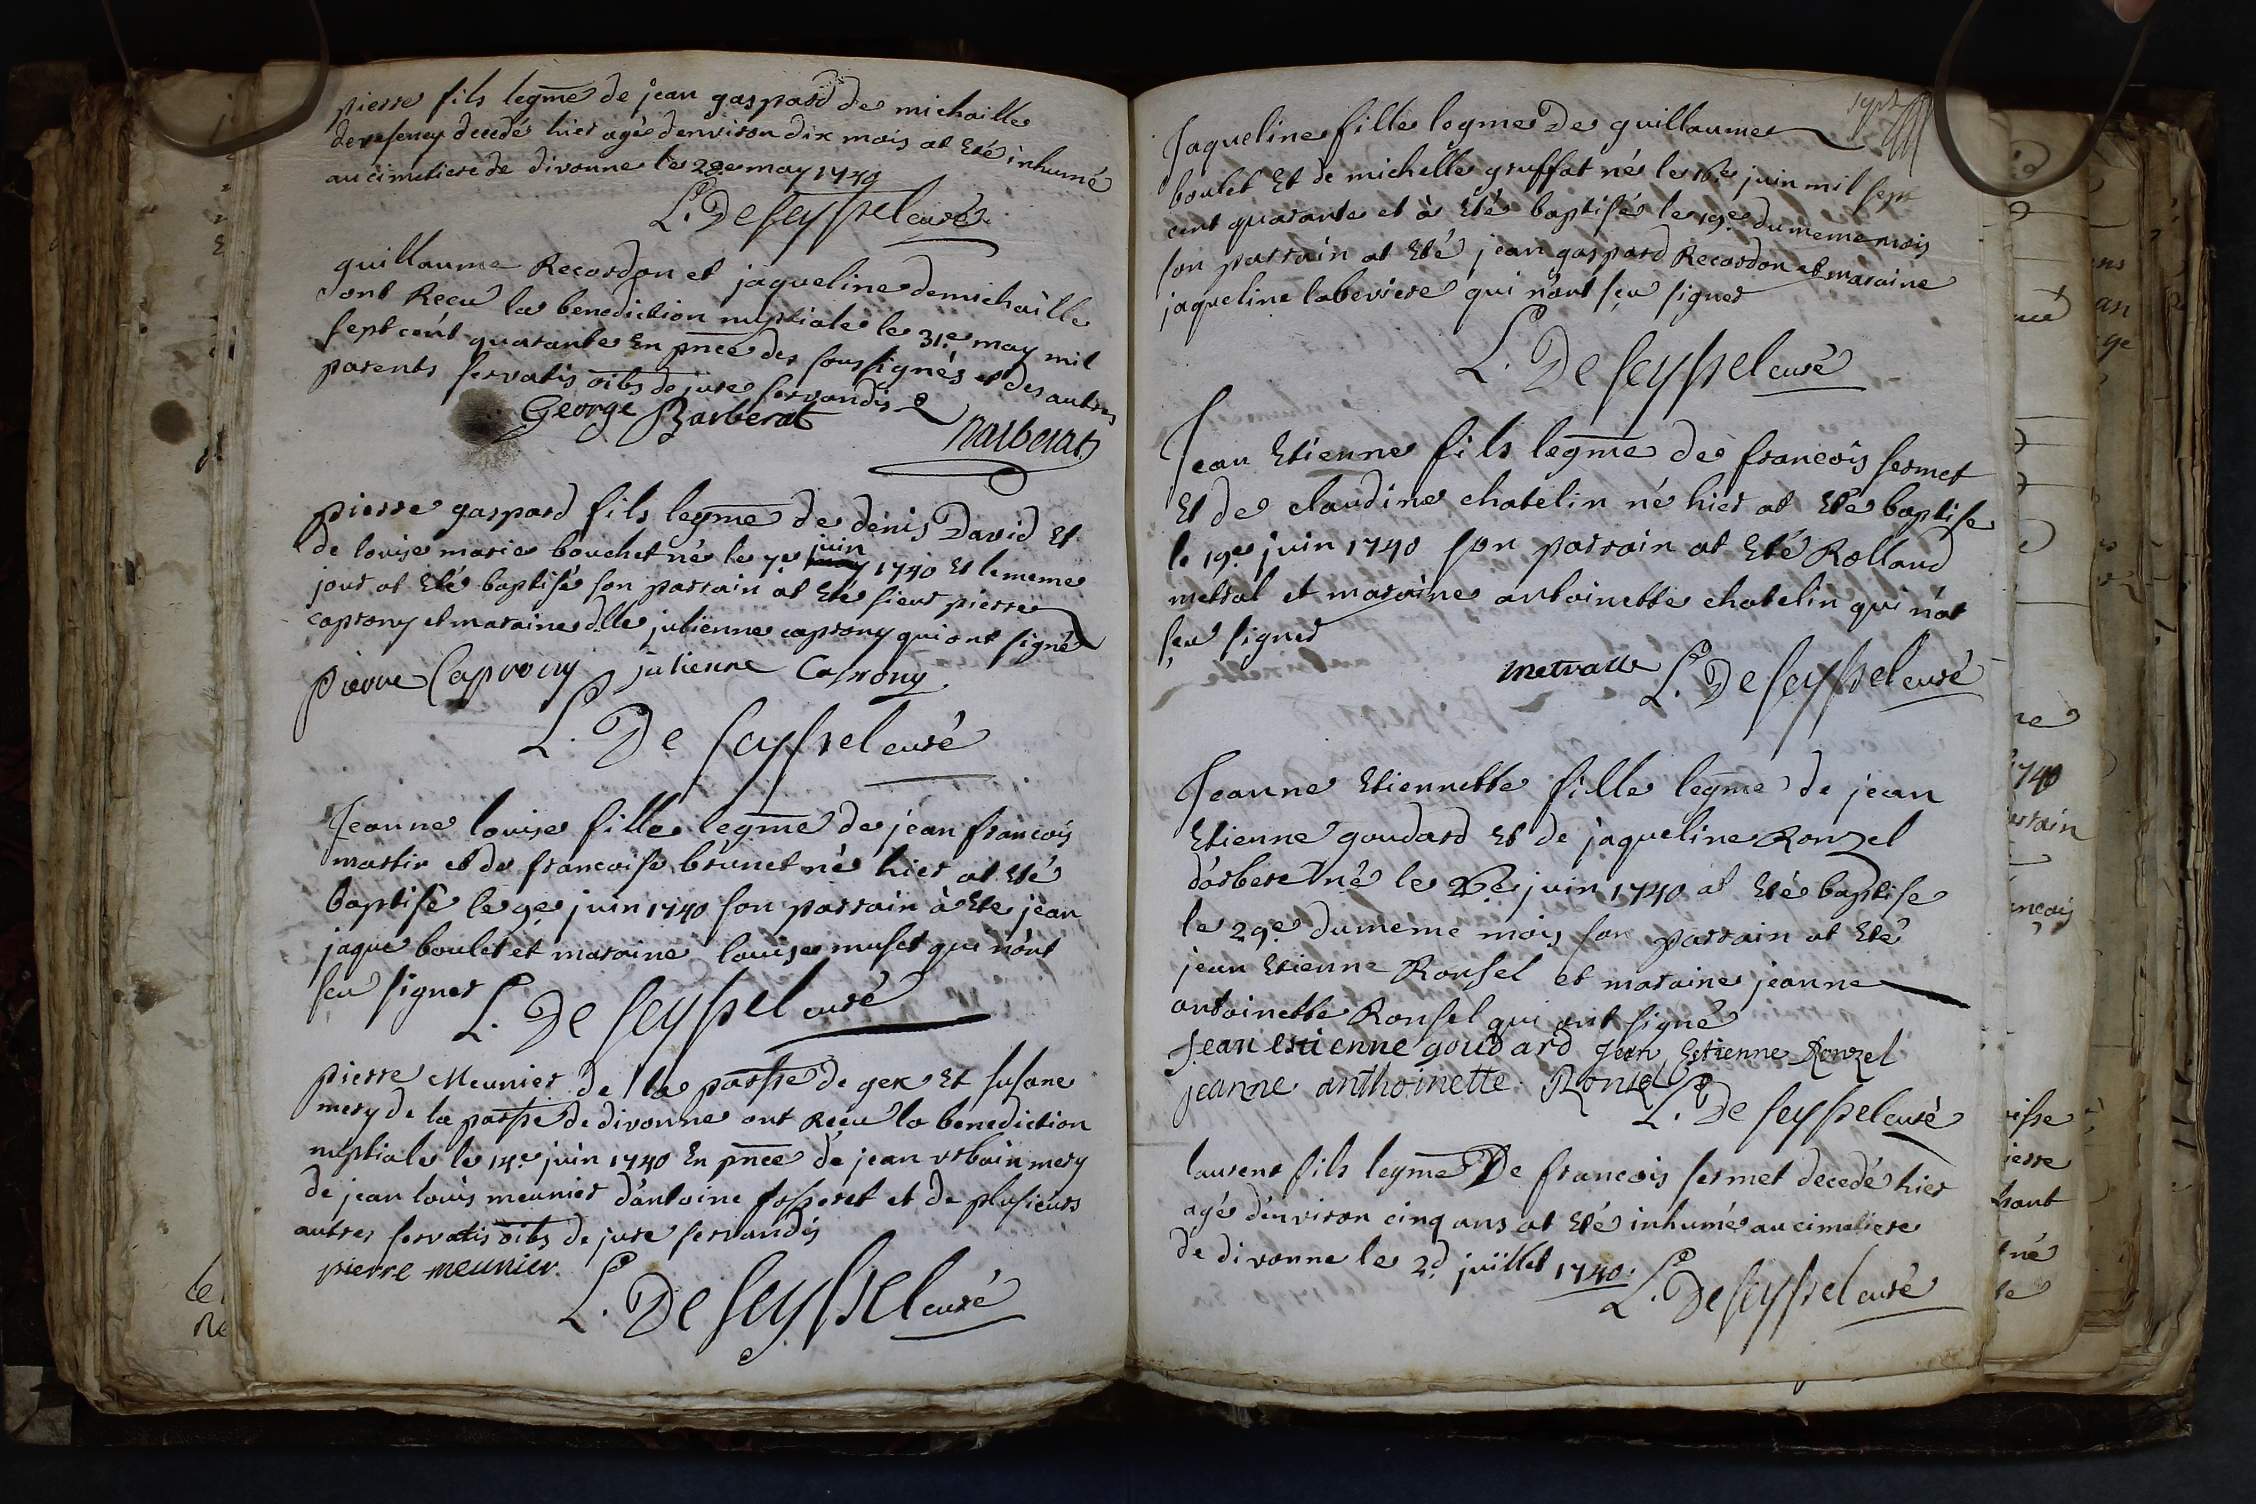 pierre fils legme de jean gaspard de michaille
de vesency decedé hier agé denviron dix mois at Eté inhumé
au cimetiere de divonne le 28e may 1740
L. De seyssel curé
guillaume Recordon et jaqueline demichaille
ont Receu la benediction nuptiale le 31e may mil
sept cent quarante En pnce des soussignés et des autres
parents servatis oibs de jure servandis
George Barberat
Barberat
pierre gaspard fils legme de denis David Et
de louise marie bouchet né le 7e juin 1740 Et le meme
jour at Eté baptisé son parrain at Eté sieur pierre
caprony et maraine dlle julienne caprony qui ont signé
pierre Caprony julienne Caprony
L. De seyssel curé
Jeanne louise fille legme de jean francois
martin et de francoise brunet né hier at Eté
baptisé le 9e juin 1740 son parrain à Ete jean
jaque boulet et maraine louise muset qui n'ont
seu signer L. De seyssel curé
pierre Meunier de la parsse de gex Et susane
mery de la parsse de divonne ont Receu la benediction
nuptiale le 14e juin 1740 En pnce de jean urbain mery
de jean louis meunier d'antoine fosseret et de plusieurs
autres servatis oibs de jure servandis
pierre meunier
L. De seyssel curé
sept
Jaqueline fille legme De guillaume
boulet Et de michelle gruffat né le 16e juin mil sept
cent quarante et à Eté baptisé le 19e du meme mois
son parrain at Eté jean gaspard Recordon et maraine
jaqueline laberiere qui n'ont seu signer
L. De seyssel curé
Jean Etienne fils legme de francois sermet
Et de claudine chatelin né hier at Eté baptise
le 19e juin 1740 son parrain at Eté Rolland
metral et maraine antoinette chatelin qui n'at
seu signer
metralle L. De seyssel curé
Jeanne Etiennette fille legme de jean
Etienne goudard Et de jaqueline Ronzel
d'arbere né le 26e juin 1740 at Eté baptise
le 29e du meme mois son parrain at Eté
jean Etienne Ronsel et maraine jeanne
antoinette Ronsel qui ont signé
Jean estienne goudard Jean Estienne Ronzel
jeanne anthoinette Ronsel
L. De seyssel curé
laurent fils legme De francois sermet decedé hier
agé d'environ cinq ans at Eté inhumé au cimetiere
de divonne le 2d juillet 1740.
L. De seyssel curé